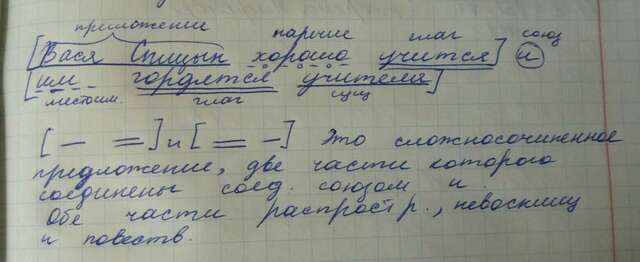 приложение наречие глаг союз
[Вася Спицын хорошо учится] и
[им гордятся учителя]
местоим. глаг сущ
[— =] и [= —] Это сложносочиненное
предложение, две части которого
соединены соед. союзом и.
Обе части распростр., невосклиц
и повеств.